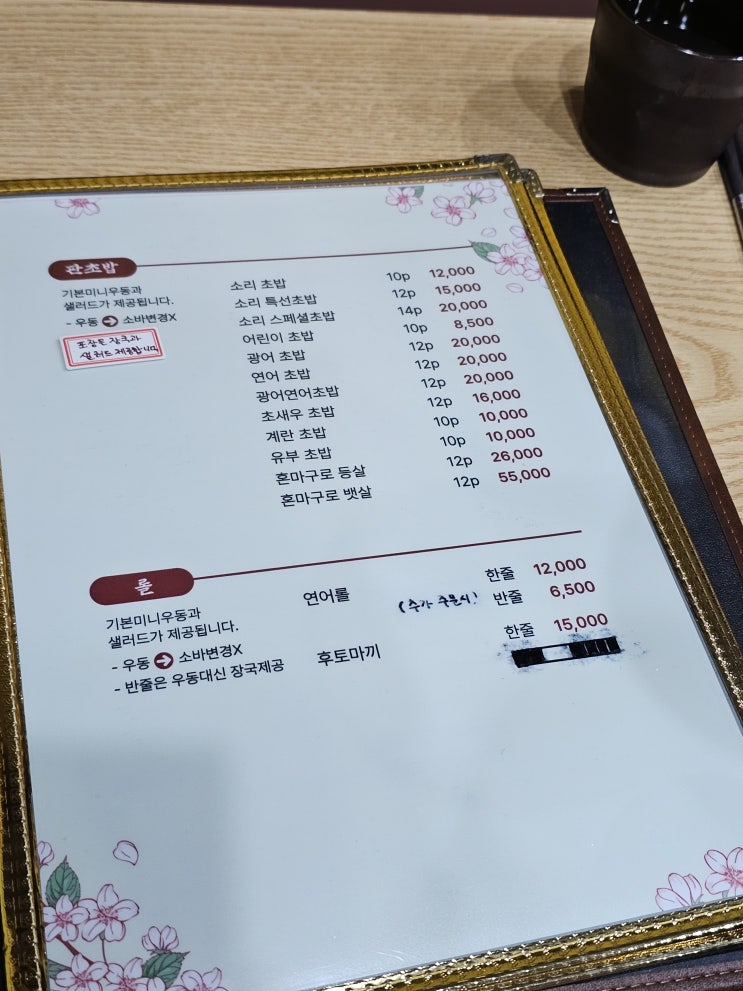 판초밥
기본미니우동과
샐러드가 제공됩니다.
- 우동 → 소바변경X
포장은 장국과
샐러드 제공합니다
소리 초밥 10p 12,000
소리 특선초밥 12p 15,000
소리 스페셜초밥 14p 20,000
어린이 초밥 10p 8,500
광어 초밥 12p 20,000
연어 초밥 12p 20,000
광어연어초밥 12p 20,000
초새우 초밥 12p 16,000
계란 초밥 10p 10,000
유부 초밥 10p 10,000
혼마구로 등살 12p 26,000
혼마구로 뱃살 12p 55,000
롤
기본미니우동과
샐러드가 제공됩니다.
- 우동 → 소바변경X
- 반줄은 우동대신 장국제공
연어롤 한줄 12,000
(추가 주문시!) 반줄 6,500
후토마끼 한줄 15,000